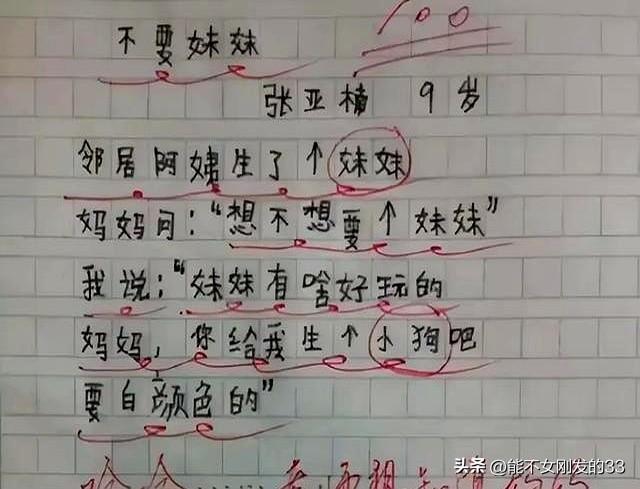 100
不要妹妹
张亚楠 9岁
邻居阿姨生了个妹妹
妈妈问:“想不想要个妹妹”
我说:“妹妹有啥好玩的
妈妈,你给我生个小狗吧
要白颜色的”
哈哈……
头条 @能不女刚发的33